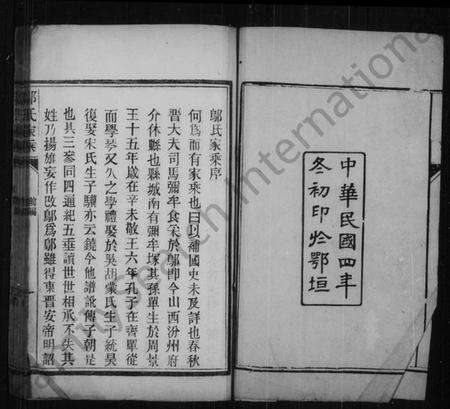 中華民國四年
冬初印於鄂垣
鄔氏家乘序
何為而有家乘也曰以補國史未及詳也春秋
晋大夫司馬彌牟食采於鄔即今山西汾州府
介休縣也縣城南有彌牟塚其孫單生於周景
王十五年歲在辛未敬王六年孔子在齊單從
而學琴又久之學禮娶於吳胡蒙氏生子統昊
復娶宋氏生子驥亦云鏡今他譜訛傳子朝是
也具三參同四通紀五垂讀世世相承不失其
姓乃揚雄妄作改鄔為鄥雖得東晋安帝明詔
氏家乘